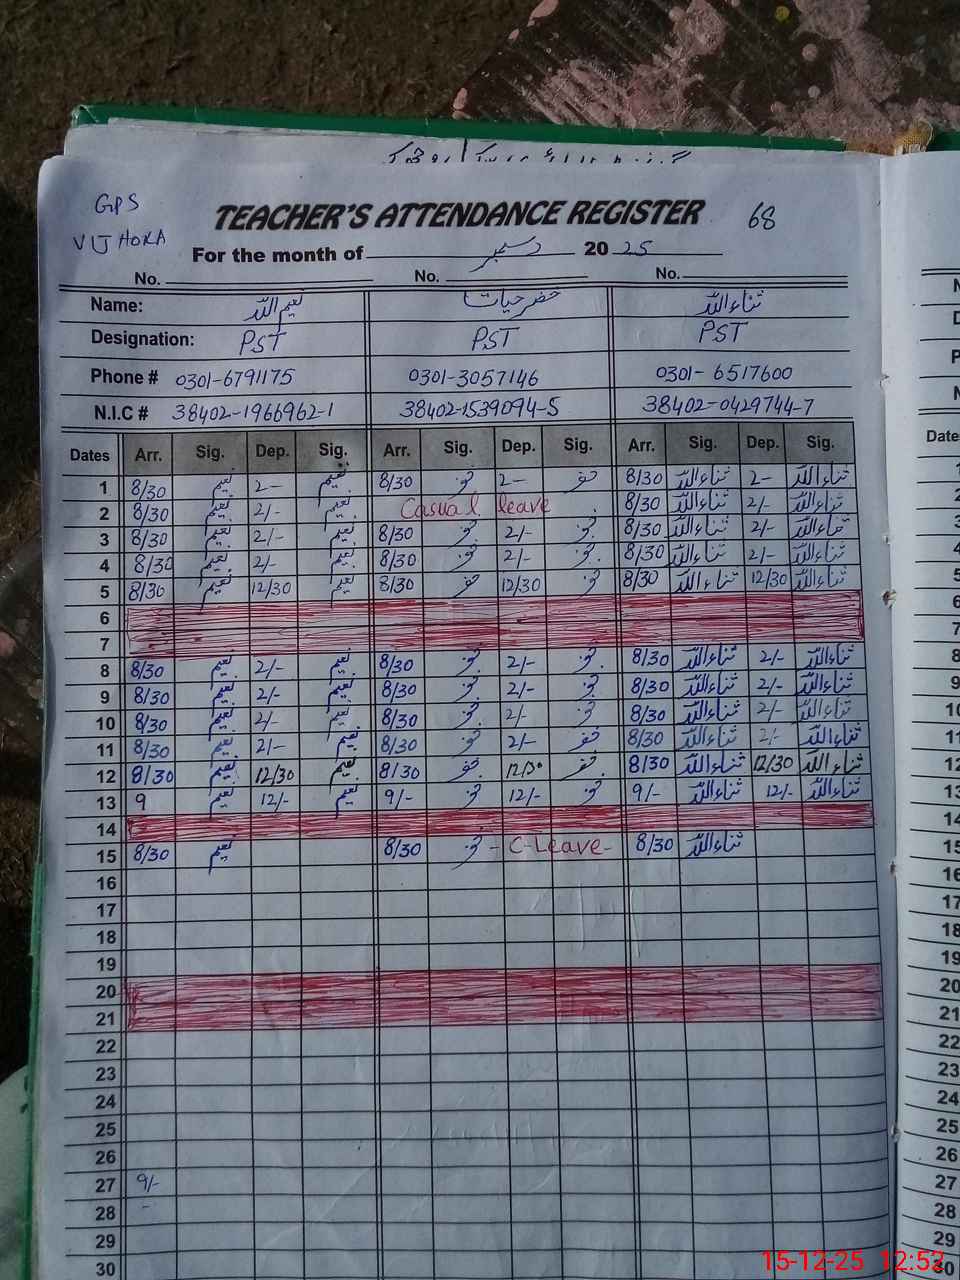 GPS
VIJHOKA
TEACHER'S ATTENDANCE REGISTER 68
For the month of دسمبر 20 25
No. No. No.
Name: نعیم اللہ خضر حیات ثناء اللہ
Designation: PST PST PST
Phone # 0301-6791175 0301-3057146 0301-6517600
N.I.C # 38402-1966962-1 38402-1539094-5 38402-0429744-7
Dates Arr. Sig. Dep. Sig. Arr. Sig. Dep. Sig. Arr. Sig. Dep. Sig.
1 8/30 نعیم 2- نعیم 8/30 خضر 2- خضر 8/30 ثناء اللہ 2- ثناء اللہ
2 8/30 نعیم 2/- نعیم Casual leave 8/30 ثناء اللہ 2/- ثناء اللہ
3 8/30 نعیم 2/- نعیم 8/30 خضر 2/- خضر 8/30 ثناء اللہ 2/- ثناء اللہ
4 8/30 نعیم 2/- نعیم 8/30 خضر 2/- خضر 8/30 ثناء اللہ 2/- ثناء اللہ
5 8/30 نعیم 12/30 نعیم 8/30 خضر 12/30 خضر 8/30 ثناء اللہ 12/30 ثناء اللہ
6
7
8 8/30 نعیم 2/- نعیم 8/30 خضر 2/- خضر 8/30 ثناء اللہ 2/- ثناء اللہ
9 8/30 نعیم 2/- نعیم 8/30 خضر 2/- خضر 8/30 ثناء اللہ 2/- ثناء اللہ
10 8/30 نعیم 2/- نعیم 8/30 خضر 2/- خضر 8/30 ثناء اللہ 2/- ثناء اللہ
11 8/30 نعیم 2/- نعیم 8/30 خضر 2/- خضر 8/30 ثناء اللہ 2/- ثناء اللہ
12 8/30 نعیم 12/30 نعیم 8/30 خضر 12/30 خضر 8/30 ثناء اللہ 12/30 ثناء اللہ
13 9 نعیم 12/- نعیم 9/- خضر 12/- خضر 9/- ثناء اللہ 12/- ثناء اللہ
14
15 8/30 نعیم 8/30 خضر - C-Leave- 8/30 ثناء اللہ
16
17
18
19
20
21
22
23
24
25
26
27 9/-
28
29
30
15-12-25 12:52